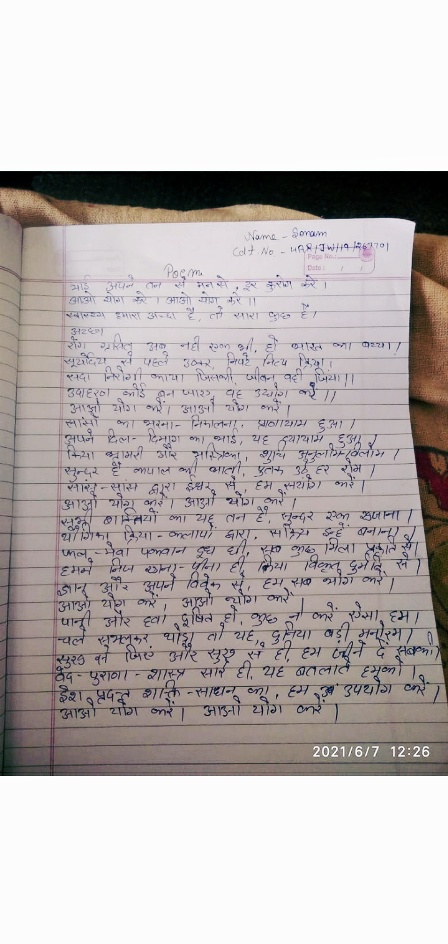 Name - Sonam
Cdt No - HAR/JW/19/267701
Page No.:
Date: / /
Poem
भाई अपने तन से मन से, दूर कुरोग करें।
आओ योग करें। आओ योग करें।।
स्वास्थ्य हमारा अच्छा है, तो सारा कुछ है।
रोग ग्रसित अब नहीं एक भी, हो भारत का बच्चा।
सूर्योदय से पहले उठकर, निपटें नित्य क्रिया।
सदा निरोगी काया जिसकी, जीवन वही जिया।।
उदाहरण कोई बन जाए वह उद्योग करें।।
आओ योग करें, आओ योग करें।
सांसों का भरना-निकालना, प्राणायाम हुआ।
अपने दिल-दिमाग का भाई, यह व्यायाम हुआ।
क्रिया भ्रामरी और भस्त्रिका, शुचि अनुलोम-विलोम।
सुन्दर है कपाल की भाती, पुलक उठे हर रोम।
सांस-सांस द्वारा ईश्वर से हम संयोग करें।
आओ योग करें। आओ योग करें।
सुप्त शक्तियों का यह तन है, सुन्दर एक खजाना।
यौगिक क्रिया-कलापों द्वारा, सक्रिय इन्हें बनाना।
फल-मेवा पकवान दूध घी, सब कुछ मिला प्रकृति से।
हमने निज खाना-पीना ही, किया विकृत दुर्मति से।
ज्ञान और अपने विवेक से, हम सब भोग करें।
आओ योग करें, आओ योग करें
पानी और हवा दूषित हो, कुछ न करें ऐसा हम।
चलें संभलकर थोड़ा तो यह, दुनिया बड़ी मनोरम।
सुख से जिएं और सुख से ही, हम जीने दें सबको।
वेद-पुराण-शास्त्र सारे ही, यह बतलाते हमको।
ईश प्रदत्त शक्ति-साधन का, हम उपयोग करें।
आओ योग करें। आओ योग करें।
2021/6/7 12:26